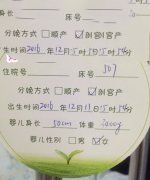 身高 床号
分娩方式 □顺产 ☑剖宫产
出生时间 2016年12月15日5时54分
住院号 床号 507
分娩方式 □顺产 ☑剖宫产
出生时间 2016年12月15日5时54分
婴儿身长 50cm 体重 3000g
婴儿性别 □男 ☑女